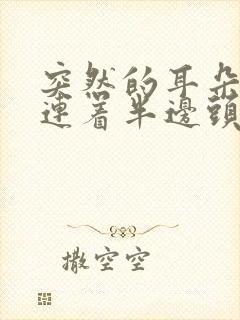 突然的耳朵
連着半邊頭
撒空空